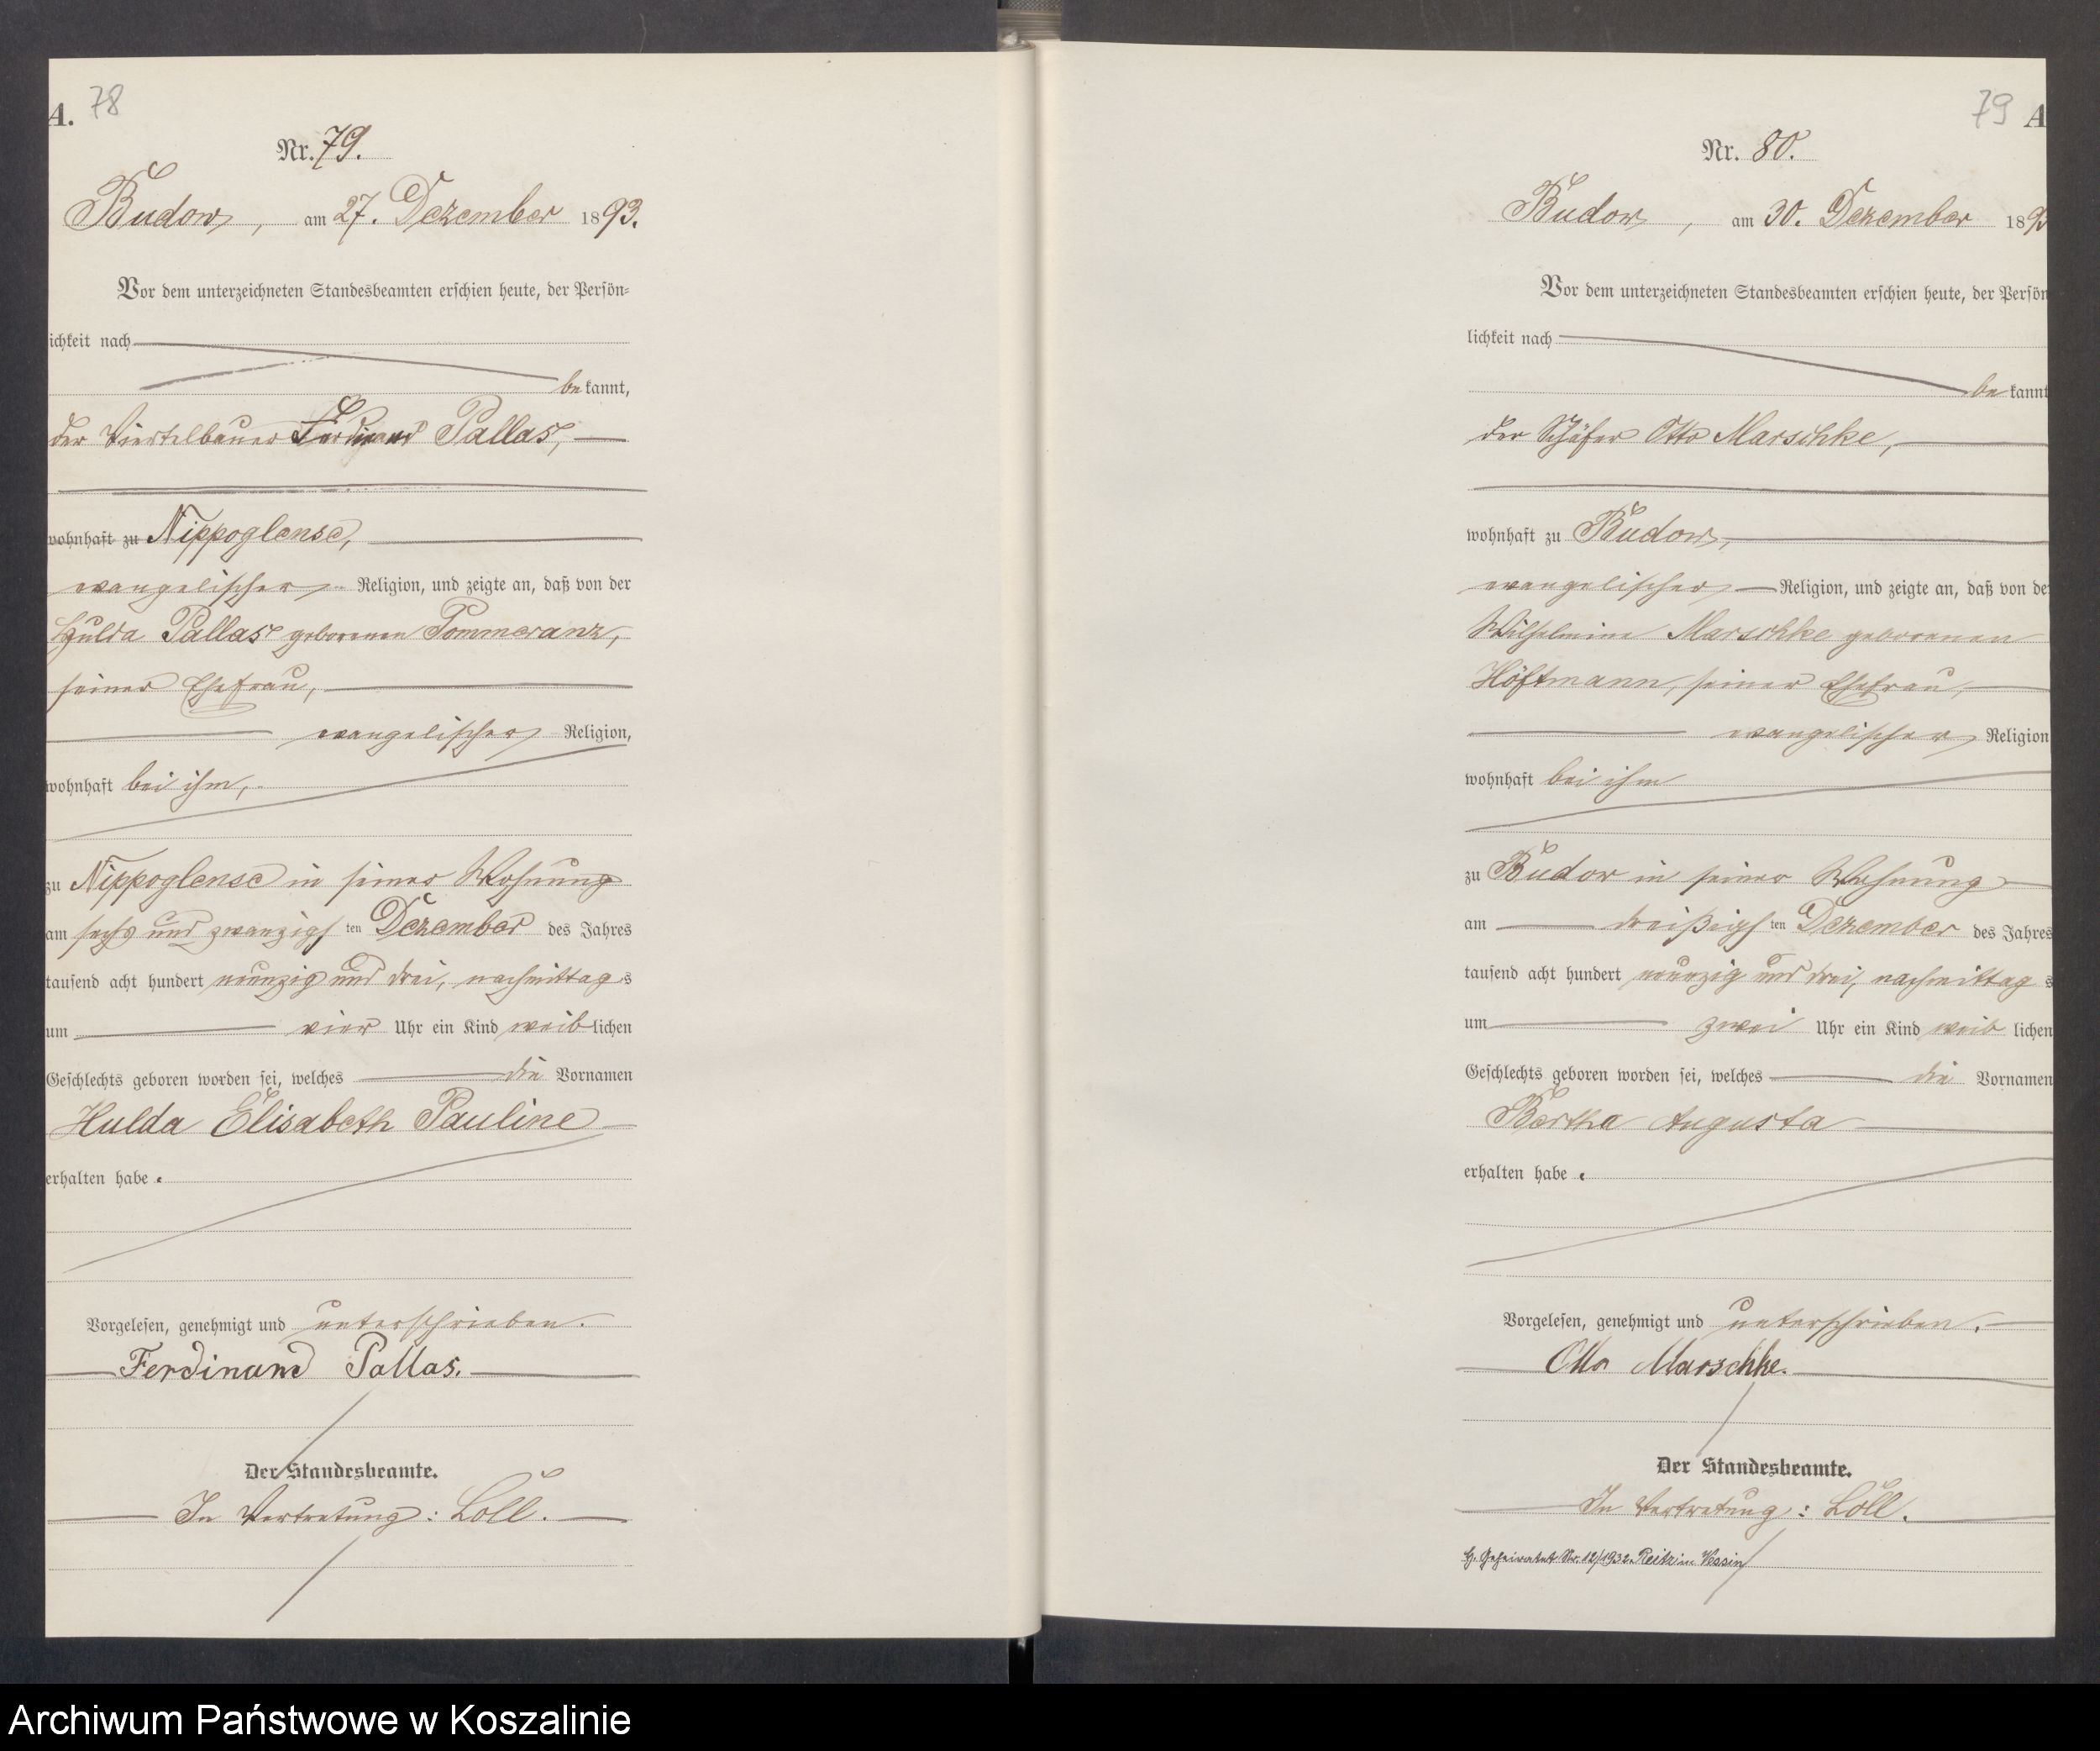 A. 78
Nr. 79.
Budow, am 27. Dezember 1893.
Vor dem unterzeichneten Standesbeamten erschien heute, der Persön-
ichkeit nach
be kannt,
der Viertelbauer Ferdinand Pallas,
wohnhaft zu Nippoglense,
evangelischer Religion, und zeigte an, daß von der
Hulda Pallas geborenen Pommeranz,
seiner Ehefrau,
evangelischer Religion,
wohnhaft bei ihm,
zu Nippoglense in seiner Wohnung
am sechs und zwanzigs ten Dezember des Jahres
tausend acht hundert neunzig und drei, nachmittag s
um vier Uhr ein Kind weib lichen
Geschlechts geboren worden sei, welches die Vornamen
Hulda Elisabeth Pauline
erhalten habe.
Vorgelesen, genehmigt und unterschrieben.
Ferdinand Pallas.
Der Standesbeamte.
In Vertretung: Löll.
79 A
Nr. 80.
Budow, am 30. Dezember 189
Vor dem unterzeichneten Standesbeamten erschien heute, der Persön
lichkeit nach
be kannt
der Schäfer Otto Marschke,
wohnhaft zu Budow,
evangelischer Religion, und zeigte an, daß von de
Wilhelmine Marschke geborenen
Höftmann, seiner Ehefrau,
evangelischer Religion
wohnhaft bei ihm
zu Budow in seiner Wohnung
am dreißigs ten Dezember des Jahres
tausend acht hundert neunzig und drei, nachmittag s
um zwei Uhr ein Kind weib lichen
Geschlechts geboren worden sei, welches die Vornamen
Bertha Augusta
erhalten habe.
Vorgelesen, genehmigt und unterschrieben.
Otto Marschke.
Der Standesbeamte.
In Vertretung: Löll.
Geheiratet Nr. 12/1932. Reitz in Wessin
Archiwum Państwowe w Koszalinie